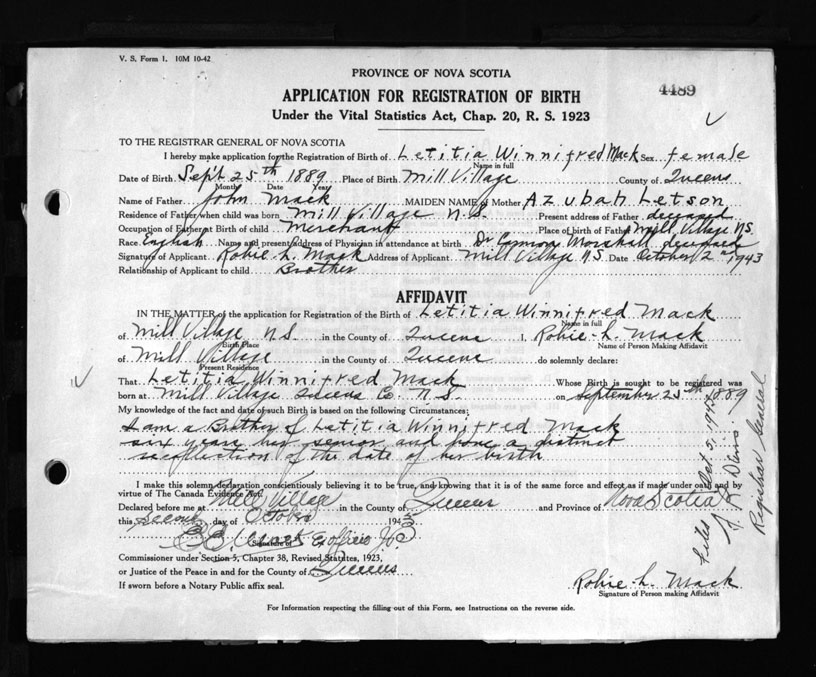 V. S. Form 1. 10M 10-42
PROVINCE OF NOVA SCOTIA
4489
APPLICATION FOR REGISTRATION OF BIRTH
Under the Vital Statistics Act, Chap. 20, R. S. 1923
TO THE REGISTRAR GENERAL OF NOVA SCOTIA
I hereby make application for the Registration of Birth of Letitia Winnifred Mack Sex female
Name in full
Date of Birth Sept 25th 1889 Place of Birth Mill Village County of Queens
Month Date Year
Name of Father John Mack MAIDEN NAME of Mother Azubah Letson
Residence of Father when child was born Mill Village N.S. Present address of Father deceased
Occupation of Father at Birth of child Merchant Place of birth of Father Mill Village N.S.
Race English Name and present address of Physician in attendance at birth Dr Marshall deceased
Signature of Applicant Robie L. Mack Address of Applicant Mill Village N.S. Date October 2nd 1943
Relationship of Applicant to child Brother
AFFIDAVIT
IN THE MATTER of the application for Registration of the Birth of Letitia Winnifred Mack
Name in full
of Mill Village N.S. in the County of Queens I, Robie L. Mack
Birth Place Name of Person Making Affidavit
of Mill Village in the County of Queens do solemnly declare:
Present Residence
That Letitia Winnifred Mack Whose Birth is sought to be registered was
born at Mill Village Queens Co. N.S. on September 25th 1889
My knowledge of the fact and date of such Birth is based on the following Circumstances:
I am a Brother of Letitia Winnifred Mack
six years her senior and have a distinct
recollection of the date of her birth
I make this solemn declaration conscientiously believing it to be true, and knowing that it is of the same force and effect as if made under oath and by
virtue of The Canada Evidence Act.
Declared before me at Mill Village in the County of Queens and Province of Nova Scotia
this second day of October 1943
Mack
Signature of
Commissioner under Section 5, Chapter 38, Revised Statutes, 1923,
or Justice of the Peace in and for the County of Queens
If sworn before a Notary Public affix seal.
Robie L. Mack
Signature of Person making Affidavit
For Information respecting the filling out of this Form, see Instructions on the reverse side.
Filed Oct. 5, 1943
Registrar General